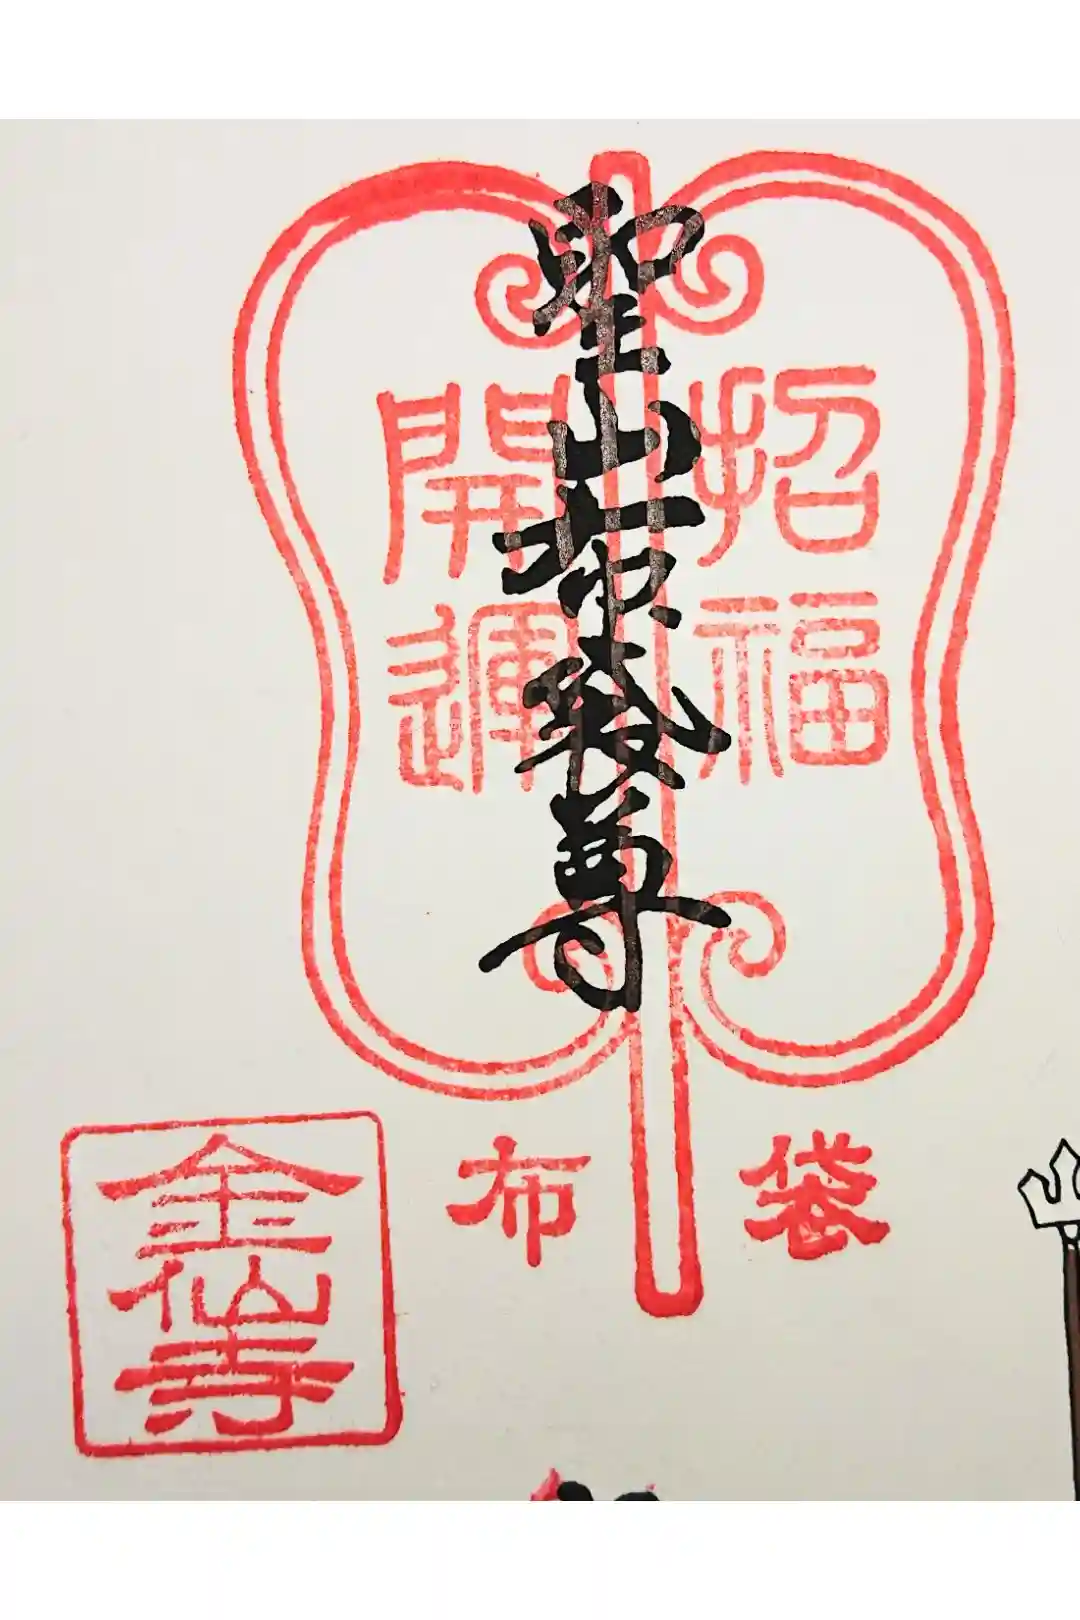 招福
聖山布袋尊
開運
布袋
金仙寺